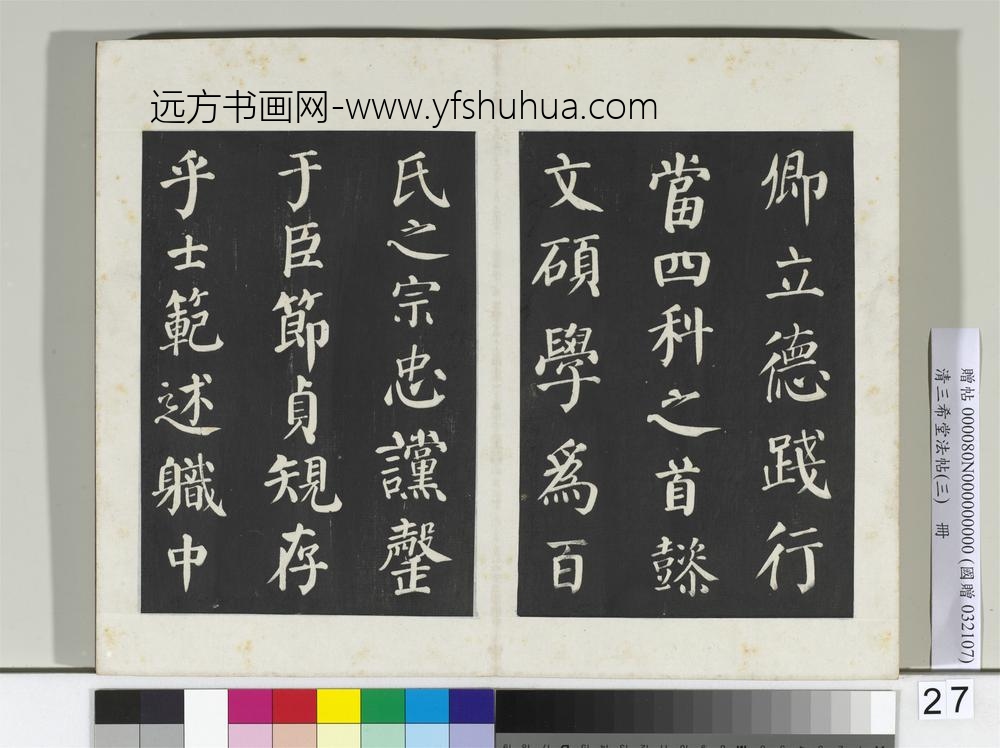 远方书画网-www.yfshuhua.com
卿立德踐行
當四科之首懿
文碩學爲百
氏之宗忠讜罄
于臣節貞規存
乎士範述職中
贈帖 0000080N000000000 (國贈 032107)
清三希堂法帖(三) 冊
27